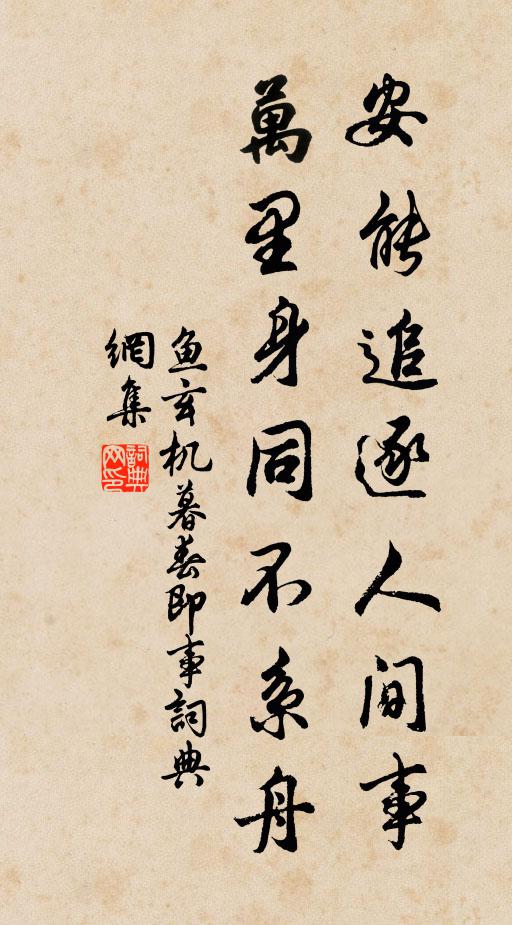 安能追逐人间事
萬里身同不系舟
鱼玄机暮春即事詞典
網集
詞典网印